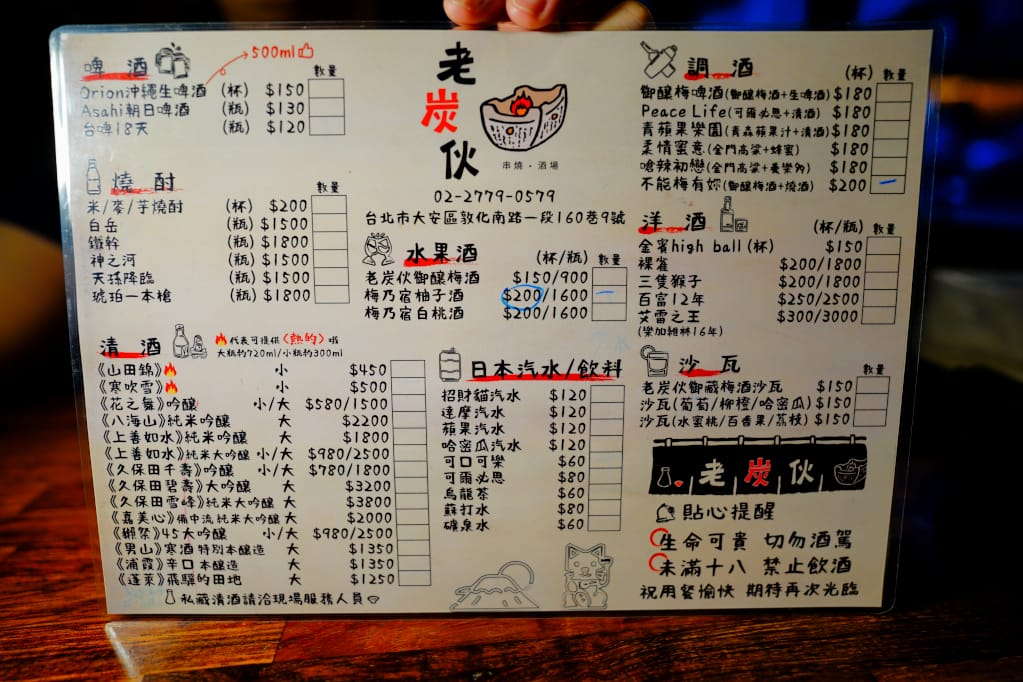 啤酒
500ml
數量
Orion沖繩生啤酒 (杯) $150
Asahi朝日啤酒 (瓶) $130
台啤18天 (瓶) $120
燒酎
數量
米/麥/芋燒酎 (杯) $200
白岳 (瓶) $1500
鐵幹 (瓶) $1800
神之河 (瓶) $1500
天孫降臨 (瓶) $1500
琥珀一本槍 (瓶) $1800
清酒
代表可提供〈熱的〉喔
大瓶約720ml/小瓶約300ml
《山田錦》 小 $450
《寒吹雪》 小 $500
《花之舞》吟釀 小/大 $580/1500
《八海山》純米吟釀 大 $2200
《上善如水》純米吟釀 大 $1800
《上善如水》純米大吟釀 小/大 $980/2500
《久保田千壽》吟釀 小/大 $780/1800
《久保田碧壽》大吟釀 大 $3200
《久保田雪峰》純米大吟釀 大 $3800
《嘉美心》備中流 純米大吟釀 大 $2000
《獺祭》45大吟釀 小/大 $980/2500
《男山》寒酒 特別本釀造 大 $1350
《浦霞》辛口 本釀造 大 $1350
《蓬萊》飛驒的田地 大 $1250
私藏清酒請洽現場服務人員
老炭伙
串燒·酒場
02-2779-0579
台北市大安區敦化南路一段160巷9號
水果酒
(杯/瓶) 數量
老炭伙御釀梅酒 $150/900
梅乃宿柚子酒 $200/1600
梅乃宿白桃酒 $200/1600
日本汽水/飲料
招財貓汽水 $120
達摩汽水 $120
蘋果汽水 $120
哈密瓜汽水 $120
可口可樂 $60
可爾必思 $80
烏龍茶 $60
蘇打水 $80
礦泉水 $60
調酒
(杯) 數量
御釀梅啤酒(御釀梅酒+生啤酒) $180
Peace Life(可爾必思+清酒) $180
青蘋果樂園(青森蘋果汁+清酒) $180
柔情蜜意(金門高粱+蜂蜜) $180
嗆辣初戀(金門高粱+養樂多) $180
不能梅有妳(御釀梅酒+燒酒) $200
洋酒
(杯/瓶) 數量
金賓high ball (杯) $150
裸雀 $200/1800
三隻猴子 $200/1800
百富12年 $250/2500
艾雷之王 $300/3000
(樂加維林16年)
沙瓦
數量
老炭伙御藏梅酒沙瓦 $150
沙瓦(葡萄/柳橙/哈密瓜) $150
沙瓦(水蜜桃/百香果/荔枝) $150
老炭伙
貼心提醒
生命可貴 切勿酒駕
未滿十八 禁止飲酒
祝用餐愉快 期待再次光臨